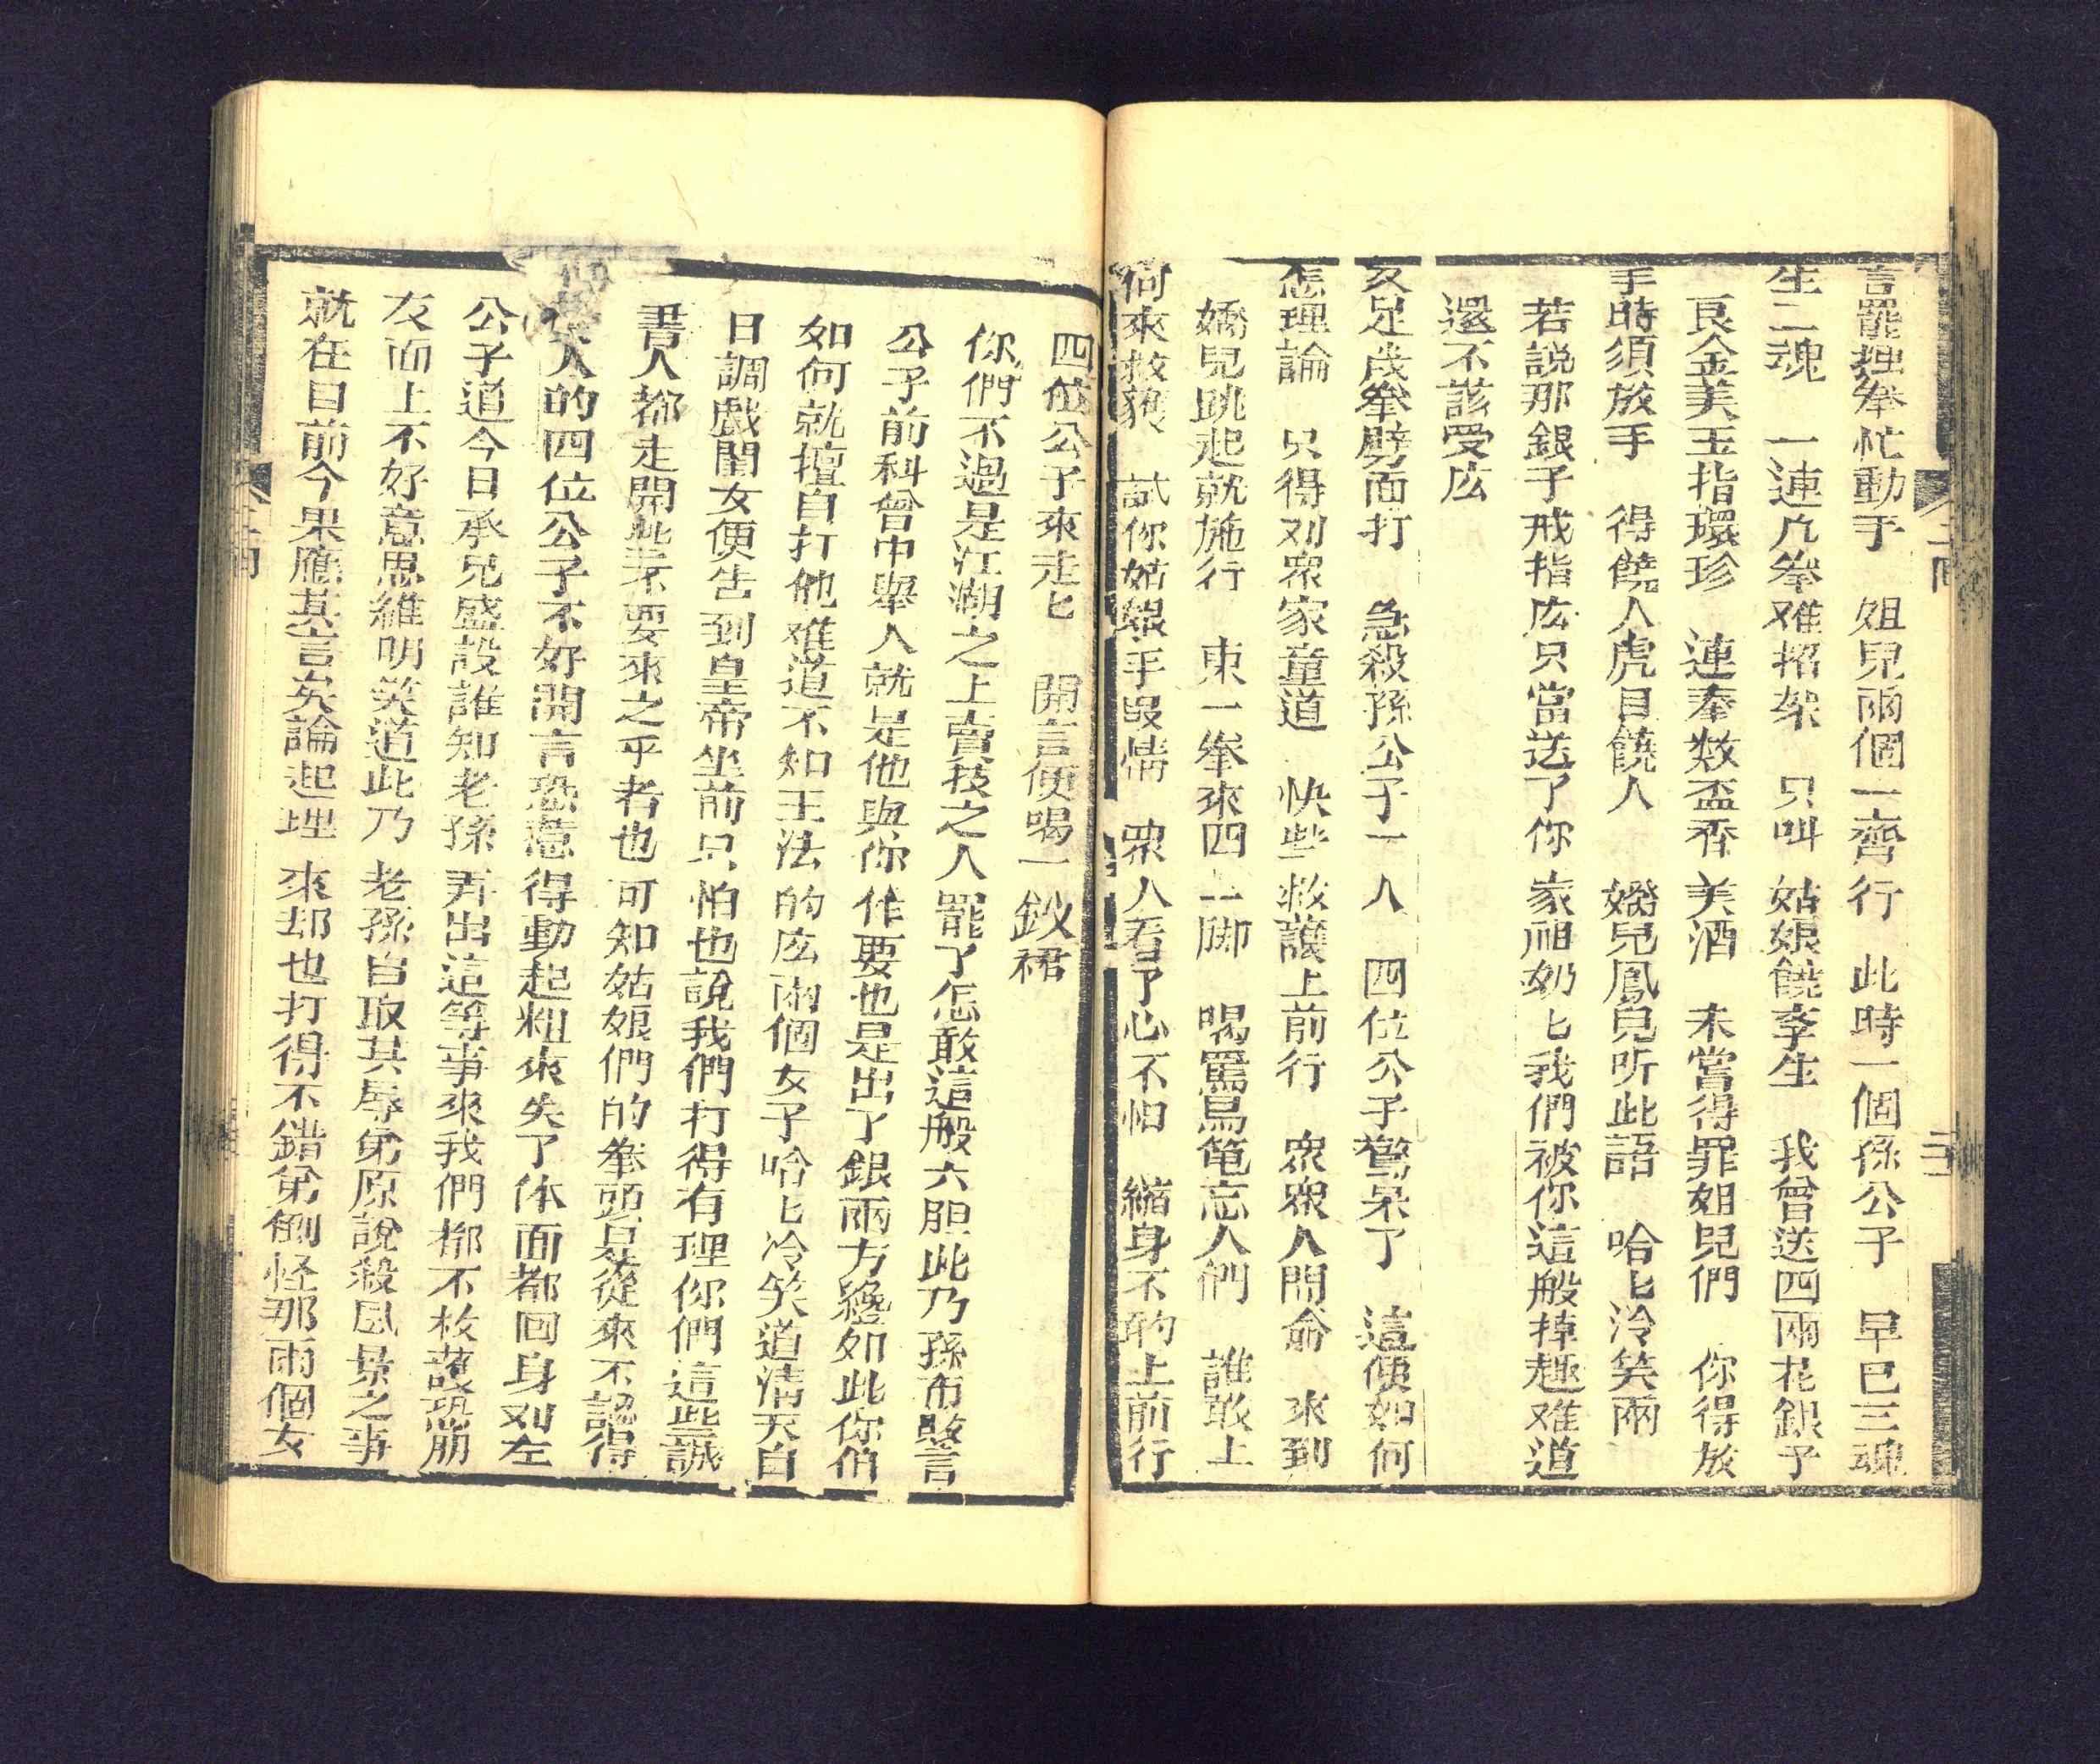 言罷拽拳忙動手　姐兒兩個一齊行　此時一個孫公子　早已三魂
生二魂　一連几拳难招架　只叫姑娘饒李生　我曾送四兩花銀子
良金美玉指環珍　連奉数盃香美酒　未嘗得罪姐兒們　你得放
手時須放手　得饒人處且饒人　嬌兒鳳兒听此語　哈匕冷笑兩
若說那銀子戒指庅只當送了你家祖奶匕我們被你這般掉趣难道
還不該受庅
交足飛拳劈面打　急殺孫公子一人　四位公子驚呆了　這便如何
怎理論　只得对眾家童道　快些救護上前行　眾眾人閧　來到
嬌兒跳起就施行　東一拳來西一脚　喝罵烏龟忘八們　誰敢上
何來救護　試你姑娘手段情　眾人看了心不怕　縮身不的上前行
四位公子來走匕　開言便喝一釵裙
你們不過是江湖之上賣技之人罷了怎敢這般大胆此乃孫布政
公子前科曾中舉人就是他與你作耍也是出了銀兩方纔如此你
如何就擅自打他难道不知王法的庅兩個女子哈匕冷笑道清天白
日調戲閨女便告到皇帝坐前只怕也說我們打得有理你們這些
書人都走開些不要來之乎者也可知姑娘們的拳頭是從來不認得
人的四位公子不好開言恐惹得動起粗來失了体面都回身对左
公子道今日承兄盛設誰知老孫弄出這等事來我們都不救護恐朋
友面上不好意思維明笑道此乃老孫自取其辱弟原說殺風景之事
就在目前今果應其言矣論起理來却也打得不錯弟倒怪那兩個女